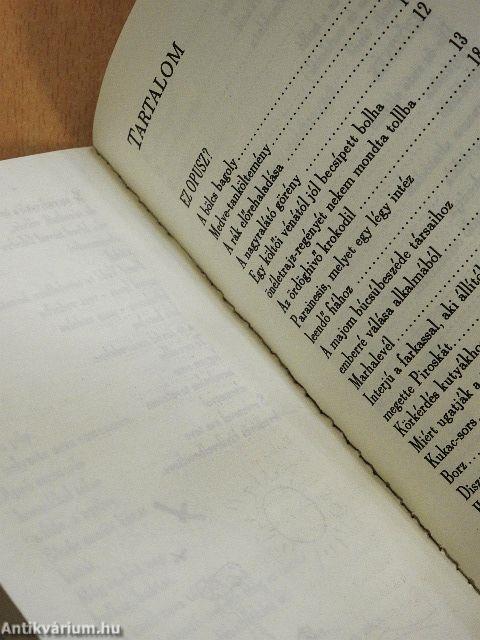 TARTALOM
EZ OPUSZ?
A bölcs bagoly
Medve-tanköltemény
A rák előrehaladása
A nagyralátó görény 12
Egy költői vénától jól becsípett bolha
önéletrajz-regényét nekem mondta tollba 13
Az ördöghívő krokodil 18
Parainesis, melyet egy légy intéz
leendő fiához
A majom búcsúbeszéde társaihoz
emberré válása alkalmából
Marhalevél
Interjú a farkassal, aki állító
megette Piroskát
Körkérdés kutyákho
Miért ugatják a
Kukac-sors
Borz
Disz
Antikvárium.hu